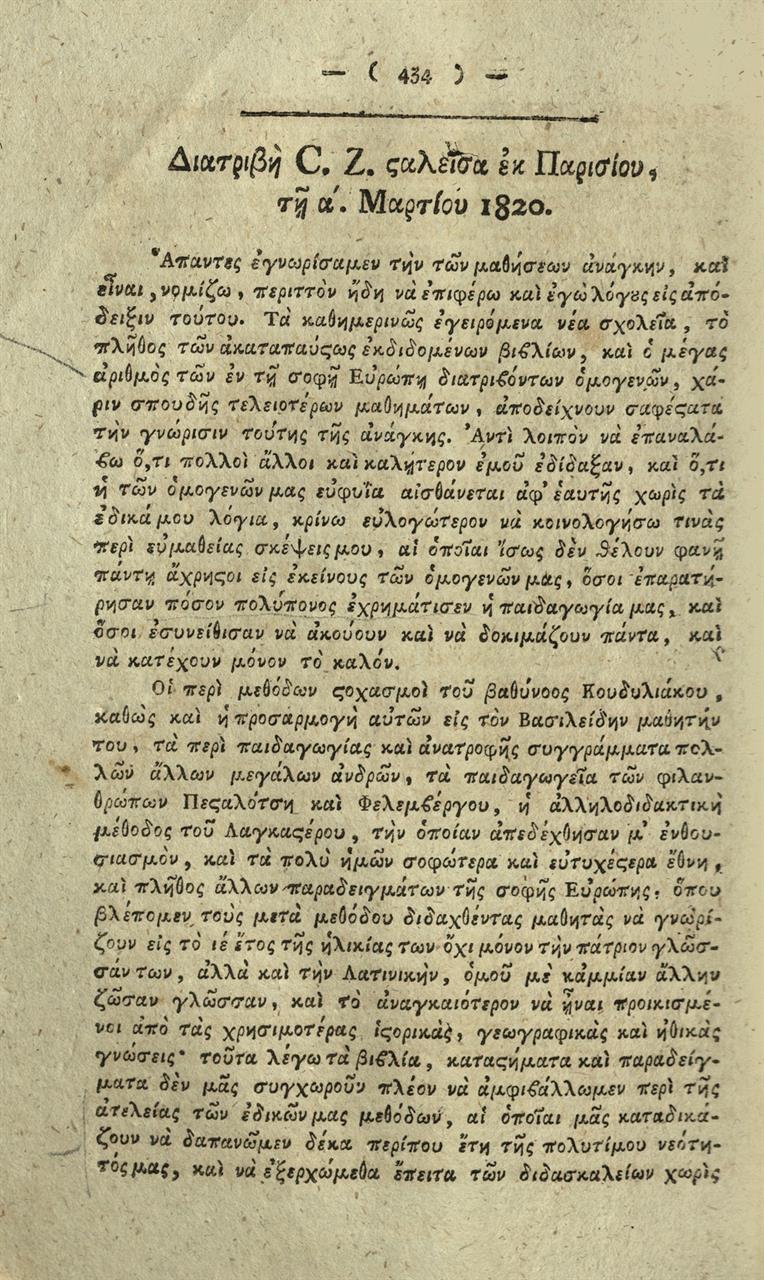 — ( 434 ) —
Διατριβὴ C. Z. ϛαλεῖσα ἐκ Παρισίου,
τῇ α΄. Μαρτίου 1820.
Ἅπαντες ἐγνωρίσαμεν τὴν τῶν μαθήσεων ἀνάγκην, καὶ
εἶναι, νομίζω, περιττὸν ἤδη νὰ ἐπιφέρω καὶ ἐγὼ λόγȣς εἰς ἀπό-
δειξιν τούτου. Τὰ καθημερινῶς ἐγειρόμενα νέα σχολεῖα, τὸ
πλῆθος τῶν ἀκαταπαύϛως ἐκδιδομένων βιϐλίων, καὶ ὁ μέγας
ἀριθμὸς τῶν ἐν τῇ σοφῇ Εὐρώπῃ διατριϐόντων ὁμογενῶν, χά-
ριν σπουδῆς τελειοτέρων μαθημάτων, ἀποδείχνουν σαφέϛατα
τὴν γνώρισιν τούτης τῆς ἀνάγκης. Ἀντὶ λοιπὸν νὰ ἐπαναλά-
ϐω ὅ,τι πολλοὶ ἄλλοι καὶ καλήτερον ἐμοῦ ἐδίδαξαν, καὶ ὅ,τι
ἡ τῶν ὁμογενῶν μας εὐφυΐα αἰσθάνεται ἀφ' ἑαυτῆς χωρὶς τὰ
ἐδικά μου λόγια, κρίνω εὐλογώτερον νὰ κοινολογήσω τινὰς
περὶ εὐμαθείας σκέψεις μου, αἱ ὁποῖαι ἴσως δὲν θέλουν φανῇ
πάντῃ ἄχρηϛοι εἰς ἐκείνους τῶν ὁμογενῶν μας, ὅσοι ἐπαρατή-
ρησαν πόσον πολύπονος ἐχρημάτισεν ἡ παιδαγωγία μας, καὶ
ὅσοι ἐσυνείθισαν νὰ ἀκούουν καὶ νὰ δοκιμάζουν πάντα, καὶ
νὰ κατέχουν μόνον τὸ καλόν.
Οἱ περὶ μεθόδων ϛοχασμοὶ τοῦ βαθύνοος Κουδυλιάκου,
καθὼς καὶ ἡ προσαρμογὴ αὐτῶν εἰς τὸν Βασιλείδην μαθητήν
του, τὰ περὶ παιδαγωγίας καὶ ἀνατροφῆς συγγράμματα πολ-
λῶν ἄλλων μεγάλων ἀνδρῶν, τὰ παιδαγωγεῖα τῶν φιλαν-
θρώπων Πεϛαλότση καὶ Φελεμϐέργου, ἡ ἀλληλοδιδακτικὴ
μέθοδος τοῦ Λαγκαϛέρου, τὴν ὁποίαν ἀπεδέχθησαν μ' ἐνθου-
σιασμὸν, καὶ τὰ πολὺ ἡμῶν σοφώτερα καὶ εὐτυχέϛερα ἔθνη,
καὶ πλῆθος ἄλλων παραδειγμάτων τῆς σοφῆς Εὐρώπης, ὅπου
βλέπομεν τοὺς μετὰ μεθόδου διδαχθέντας μαθητὰς νὰ γνωρί-
ζουν εἰς τὸ ιέ ἔτος τῆς ἡλικίας των ὄχι μόνον τὴν πάτριον γλῶσ-
σάν των, ἀλλὰ καὶ τὴν Λατινικὴν, ὁμοῦ μὲ κᾀμμίαν ἄλλην
ζῶσαν γλῶσσαν, καὶ τὸ ἀναγκαιότερον νὰ ἦναι προικισμέ-
νοι ἀπὸ τὰς χρησιμοτέρας ἱϛορικὰς, γεωγραφικὰς καὶ ἠθικὰς
γνώσεις· τοῦτα λέγω τὰ βιϐλία, καταϛήματα καὶ παραδείγ-
ματα δὲν μᾶς συγχωροῦν πλέον νὰ ἀμφιϐάλλωμεν περὶ τῆς
ἀτελείας τῶν ἐδικῶν μας μεθόδων, αἱ ὁποῖαι μᾶς καταδικά-
ζουν νὰ δαπανῶμεν δέκα περίπου ἔτη τῆς πολυτίμου νεότη-
τός μας, καὶ νὰ ἐξερχώμεθα ἔπειτα τῶν διδασκαλείων χωρὶς